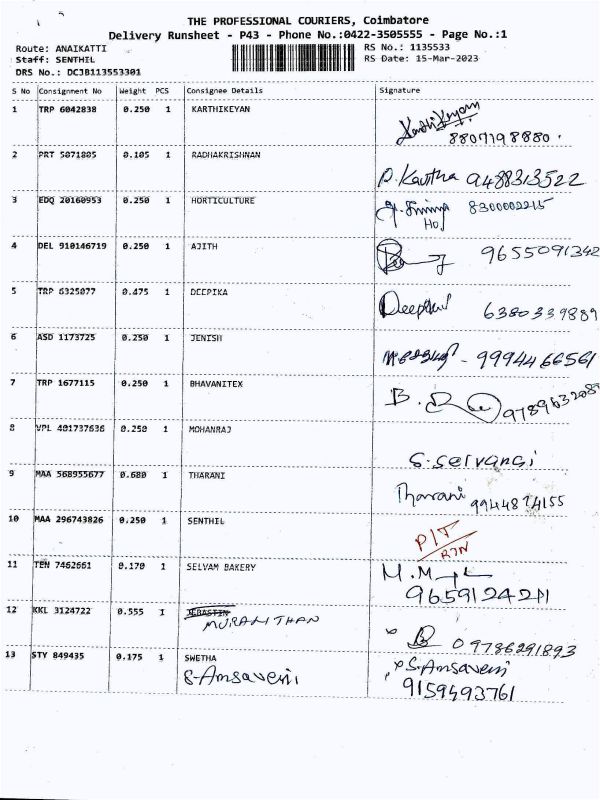 THE PROFESSIONAL COURIERS, Coimbatore
Delivery Runsheet - P43 - Phone No.:0422-3505555 - Page No.:1
Route: ANAIKATTI RS No.: 1135533
Staff: SENTHIL RS Date: 15-Mar-2023
DRS No.: DCJB113553301
S No Consignment No Weight PCS Consignee Details Signature
1 TRP 6042838 0.250 1 KARTHIKEYAN Karthikeyan
8807198880.
2 PRT 5071805 0.105 1 RADHAKRISHNAN
P. Kavitha 9488313522
3 EDQ 20160953 0.250 1 HORTICULTURE 8300002215
Ho
4 DEL 910146719 0.250 1 AJITH 9655091342
5 TRP 6325077 0.475 1 DEEPIKA Deepika 6380339889
6 ASD 1173725 0.250 1 JENISH
- 9994466561
7 TRP 1677115 0.250 1 BHAVANITEX B.
8 VPL 401737636 0.250 1 MOHANRAJ
S. Selvangi
9 MAA 568955677 0.680 1 THARANI Tharani 9944874155
10 MAA 296743826 0.250 1 SENTHIL P/T
RTN
11 TEN 7462661 0.170 1 SELVAM BAKERY M.M
9659124211
12 KKL 3124722 0.555 1 JEBASTIN
MURANITHAN
x 09786291893
13 STY 849435 0.175 1 SWETHA x S. Amsaveni
S. Amsaveni 9159493761